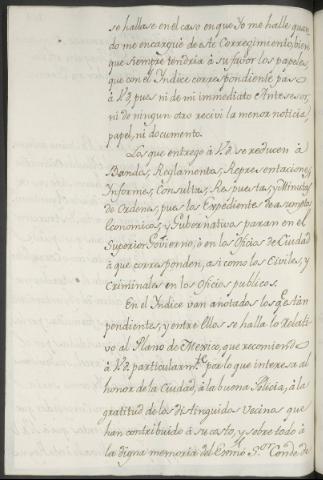 se hallase en el caso en que Yo me hallè quan
do me encarguè de este Corregimiento, bien
que siempre tendria à su favor los papeles,
que con el Indice correspondiente paso
à V.S. pues ni de mi immediato Antecesor,
ni de ningun otro recivi la menor noticia,
papel, ni documento.
Los que entrego à V.S. se reducen à
Bandos, Reglamentos, Representaciones,
Informes, Consultas, Respuestas, y Minutas
de Ordenes, pues los Expedientes de asumptos
Economicos, y Gubernativos paran en el
Superior Govierno, ò en los Oficios de Ciudad
à que corresponden, asi como los Civiles, y
Criminales en los Oficios publicos.
En el Indice van anotados los q.e están
pendientes, y entre Ellos se halla lo Relati
vo al Plano de Mexico, que recomiendo
à V.S. particularm.te por lo que interesa al
honor de la Ciudad, à la buena Policia, à la
gratitud de los distinguidos Vecinos que
han contribuido à su costo, y sobre todo à
la digna memoria del Exmô S.or Conde de